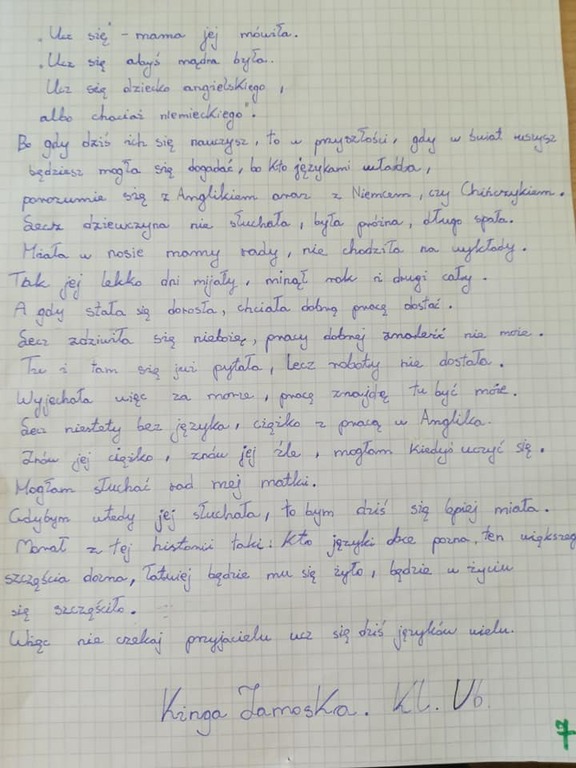 „Ucz się" - mama jej mówiła.
„Ucz się abyś mądra była.
Ucz się dziecko angielskiego,
albo chociaż niemieckiego".
Bo gdy dziś ich się nauczysz, to w przyszłości, gdy w świat ruszysz
będziesz mogła się dogadać, bo kto językami włada,
porozumie się z Anglikiem oraz z Niemcem, czy Chińczykiem.
Lecz dziewczyna nie słuchała, była próżna, długo spała.
Miała w nosie mamy rady, nie chodziła na wykłady.
Tak jej lekko dni mijały, minął rok i drugi cały.
A gdy stała się dorosła, chciała dobrą pracę dostać.
Lecz zdziwiła się niebożę, pracy dobrej znaleźć nie może.
Tu i tam się już pytała, lecz roboty nie dostała.
Wyjechała więc za morze, pracę znajdę tu być może.
Lecz niestety bez języka, ciężko z pracą w Anglika.
Znów jej ciężko, znów jej źle, mogłam kiedyś uczyć się.
Mogłam słuchać rad mej matki.
Gdybym wtedy jej słuchała, to bym dziś się lepiej miała.
Morał z tej historii taki: Kto języki obce pozna, ten większego
szczęścia dozna, łatwiej będzie mu się żyło, będzie w życiu
się szczęściło.
Więc nie czekaj przyjacielu ucz się dziś języków wielu.
Kinga Jamoska. Kl. Vb
7